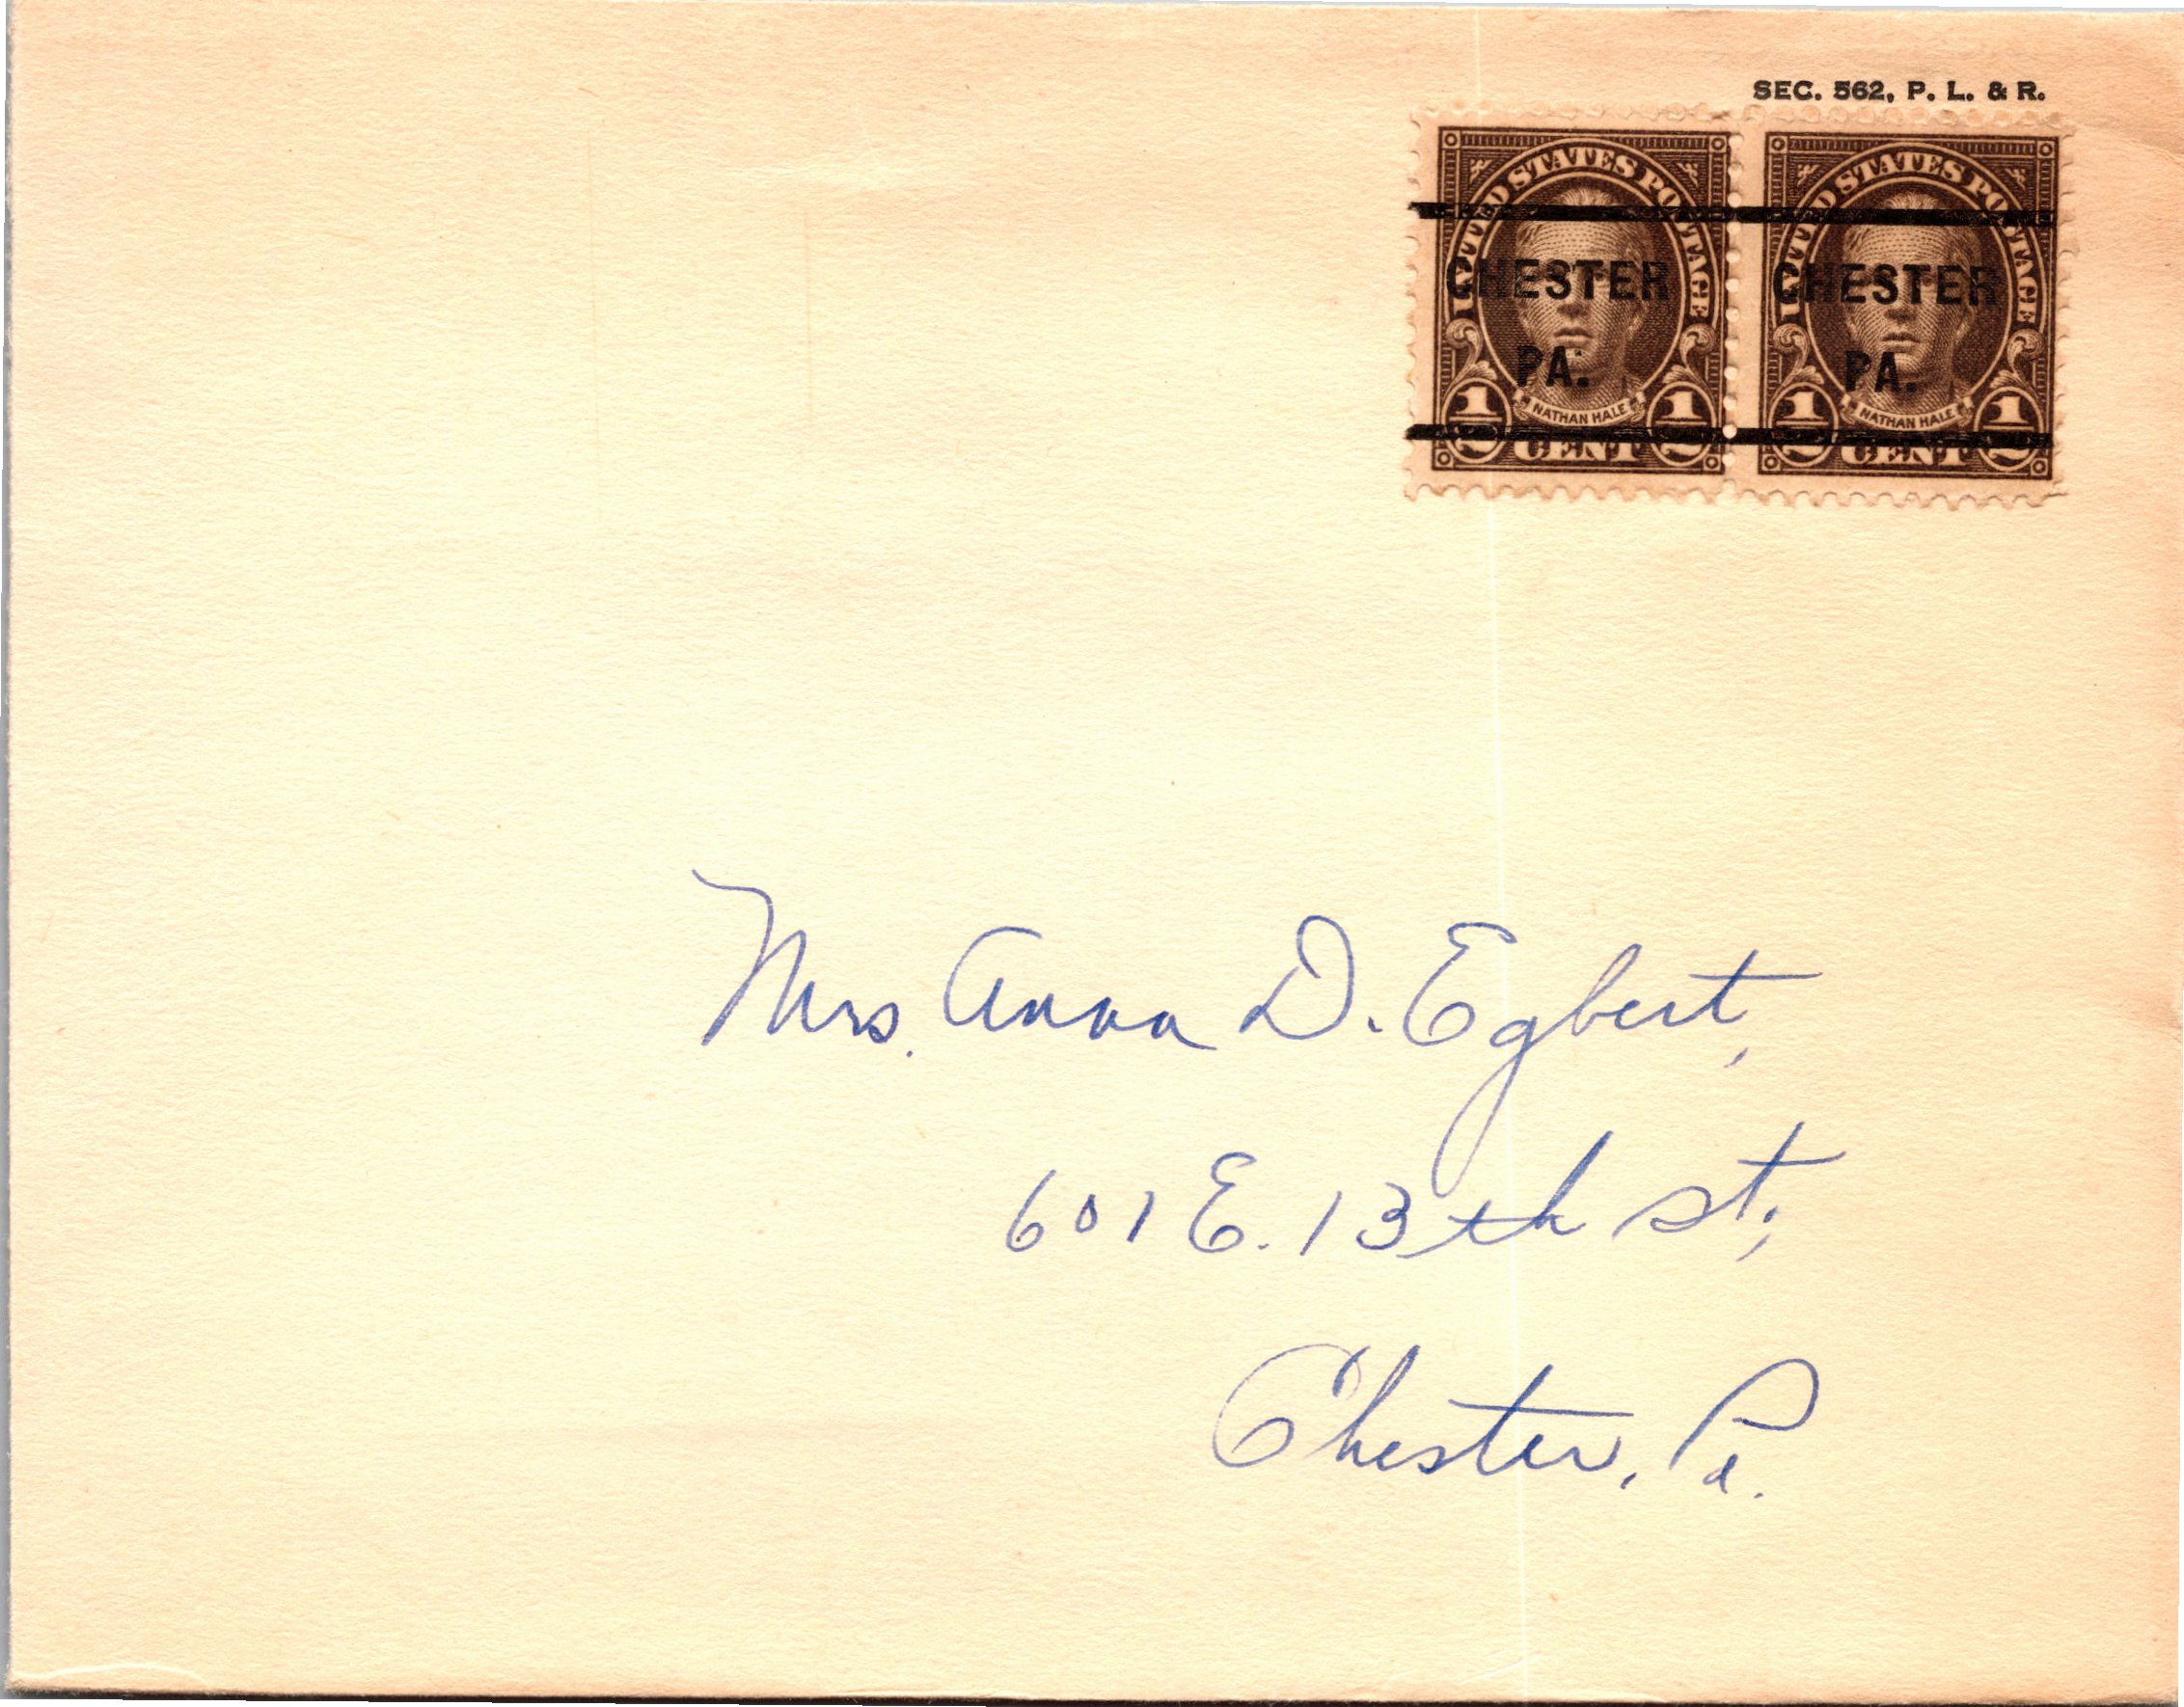 SEC. 562, P. L. & R.
UNITED STATES POSTAGE UNITED STATES POSTAGE
CHESTER CHESTER
PA. PA.
NATHAN HALE NATHAN HALE
1/2 CENT 1/2 1/2 CENT 1/2
Mrs. Anna D. Egbert,
601 E. 13th st.,
Chester, Pa.